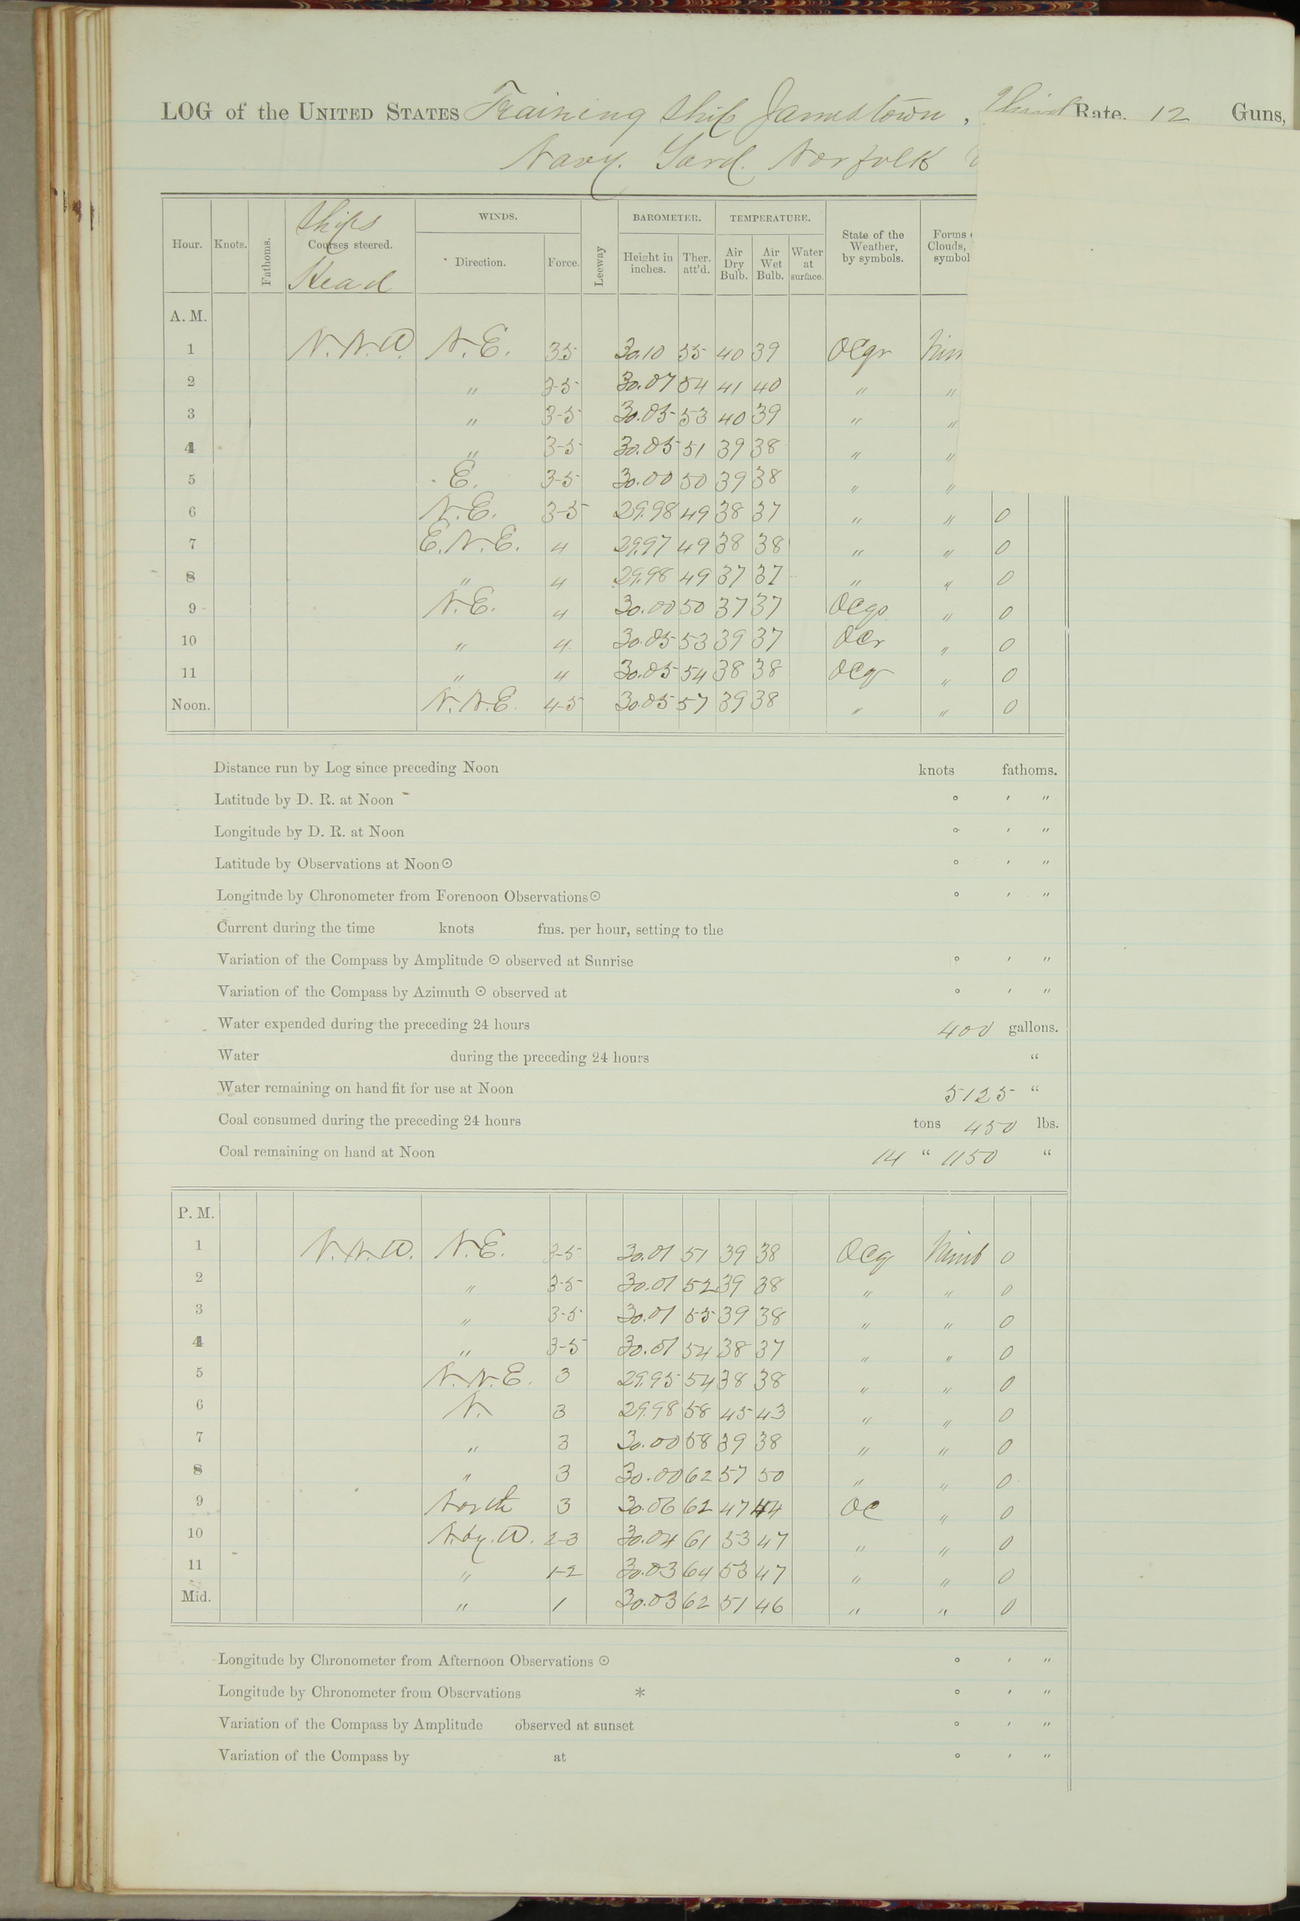 LOG of the UNITED STATES Training Ship Jamestown, Third Rate, 12 Guns,
Navy Yard Norfolk
Ships
Head
WINDS. BAROMETER. TEMPERATURE.
Hour. Knots. Fathoms. Courses steered. Direction. Force. Leeway Height in inches. Ther. att'd. Air Dry Bulb. Air Wet Bulb. Water at surface. State of the Weather, by symbols. Forms Clouds, symbol
A. M.
1 N.N.W. N.E. 3-5 30.10 55 40 39 Ocqr
2 " 3-5 30.07 54 41 40 " "
3 " 3-5 30.05 53 40 39 " "
4 " 3-5 30.05 51 39 38 " "
5 E. 3-5 30.00 50 39 38 " "
6 N.E. 3-5 29.98 49 38 37 " " 0
7 E.N.E. 4 29.97 49 38 38 " " 0
8 " 4 29.98 49 37 37 " " 0
9 N.E. 4 30.00 50 37 37 " 0
10 " 4 30.05 53 39 37 Ocr " 0
11 " 4 30.05 54 38 38 Ocq " 0
Noon. N.N.E. 4-5 30.05 57 39 38 " " 0
Distance run by Log since preceding Noon knots fathoms.
Latitude by D. R. at Noon ° ' "
Longitude by D. R. at Noon ° ' "
Latitude by Observations at Noon ☉ ° ' "
Longitude by Chronometer from Forenoon Observations ☉ ° ' "
Current during the time knots fms. per hour, setting to the
Variation of the Compass by Amplitude ☉ observed at Sunrise ° ' "
Variation of the Compass by Azimuth ☉ observed at ° ' "
Water expended during the preceding 24 hours 400 gallons.
Water during the preceding 24 hours "
Water remaining on hand fit for use at Noon 5125 "
Coal consumed during the preceding 24 hours tons 450 lbs.
Coal remaining on hand at Noon 14 " 1150 "
P. M.
1 N.N.W. N.E. 3-5 30.01 51 39 38 Ocq Nimb 0
2 " 3-5 30.01 52 39 38 " " 0
3 " 3-5 30.01 55 39 38 " " 0
4 " 3-5 30.01 54 38 37 " " 0
5 N.N.E. 3 29.95 54 38 38 " " 0
6 N. 3 29.98 58 45 43 " " 0
7 " 3 30.00 58 39 38 " " 0
8 " 3 30.00 62 57 50 " " 0
9 North 3 30.06 62 47 44 Oc " 0
10 N.by.W. 2-3 30.04 61 53 47 " " 0
11 " 1-2 30.03 64 53 47 " " 0
Mid. " 1 30.03 62 51 46 " " 0
Longitude by Chronometer from Afternoon Observations ☉ ° ' "
Longitude by Chronometer from Observations * ° ' "
Variation of the Compass by Amplitude observed at sunset ° ' "
Variation of the Compass by at ° ' "